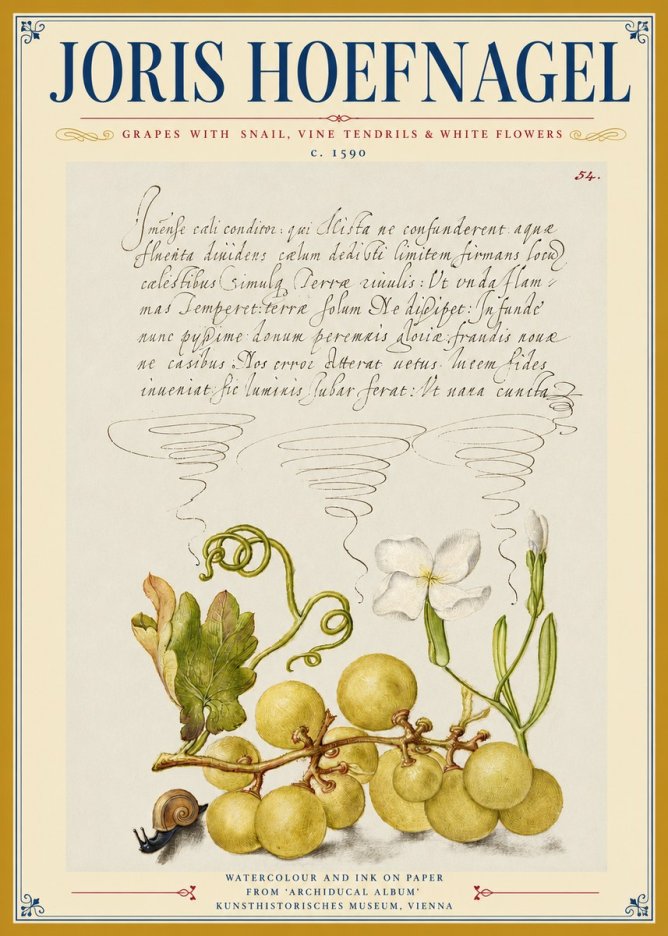 JORIS HOEFNAGEL
GRAPES WITH SNAIL, VINE TENDRILS & WHITE FLOWERS
c. 1590
54.
Imense cæli conditor: qui Mista ne confunderent aquæ
fluenta diuidens cælum dedisti limitem firmans locu
cælestibus Simulq Terræ riuulis: Ut vnda flam-
mas Temperet: terræ solum Ne dissipet: Infunde
nunc pyssime donum peremnis gloriæ, fraudis nouæ
ne casibus Nos error Atterat uetus. lucem fides
inueniat: sic luminis Jubar ferat: Ut uana cuncta
WATERCOLOUR AND INK ON PAPER
FROM 'ARCHIDUCAL ALBUM'
KUNSTHISTORISCHES MUSEUM, VIENNA